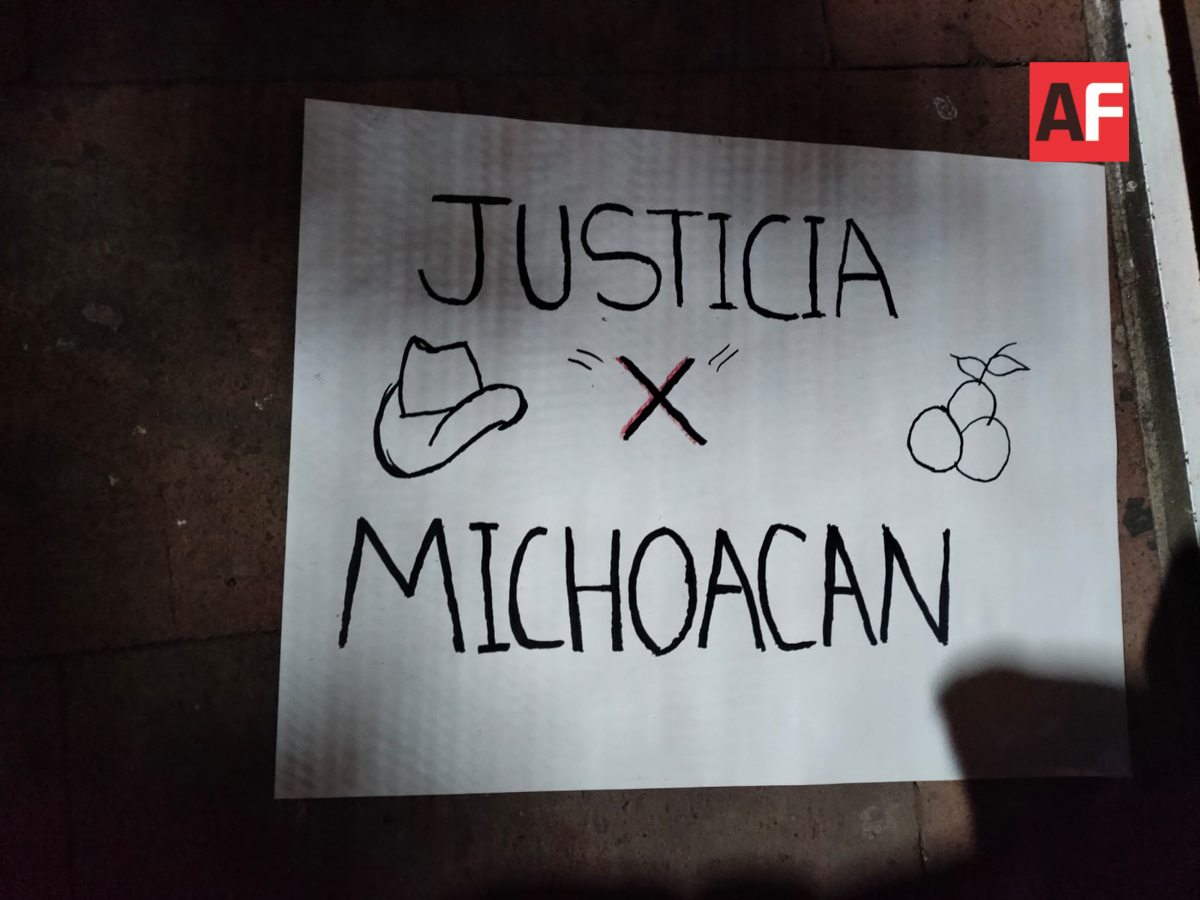 AF
JUSTICIA
X
MICHOACAN